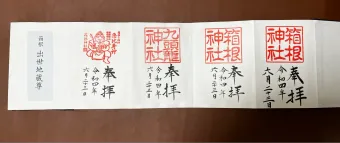 奉拝
箱根
神社
令和四年
六月二十三日
奉拝
箱根
神社
令和四年
六月二十三日
奉拝
九頭龍
神社
令和四年
六月二十三日
奉拝
令和四年
六月二十三日
出世地蔵尊